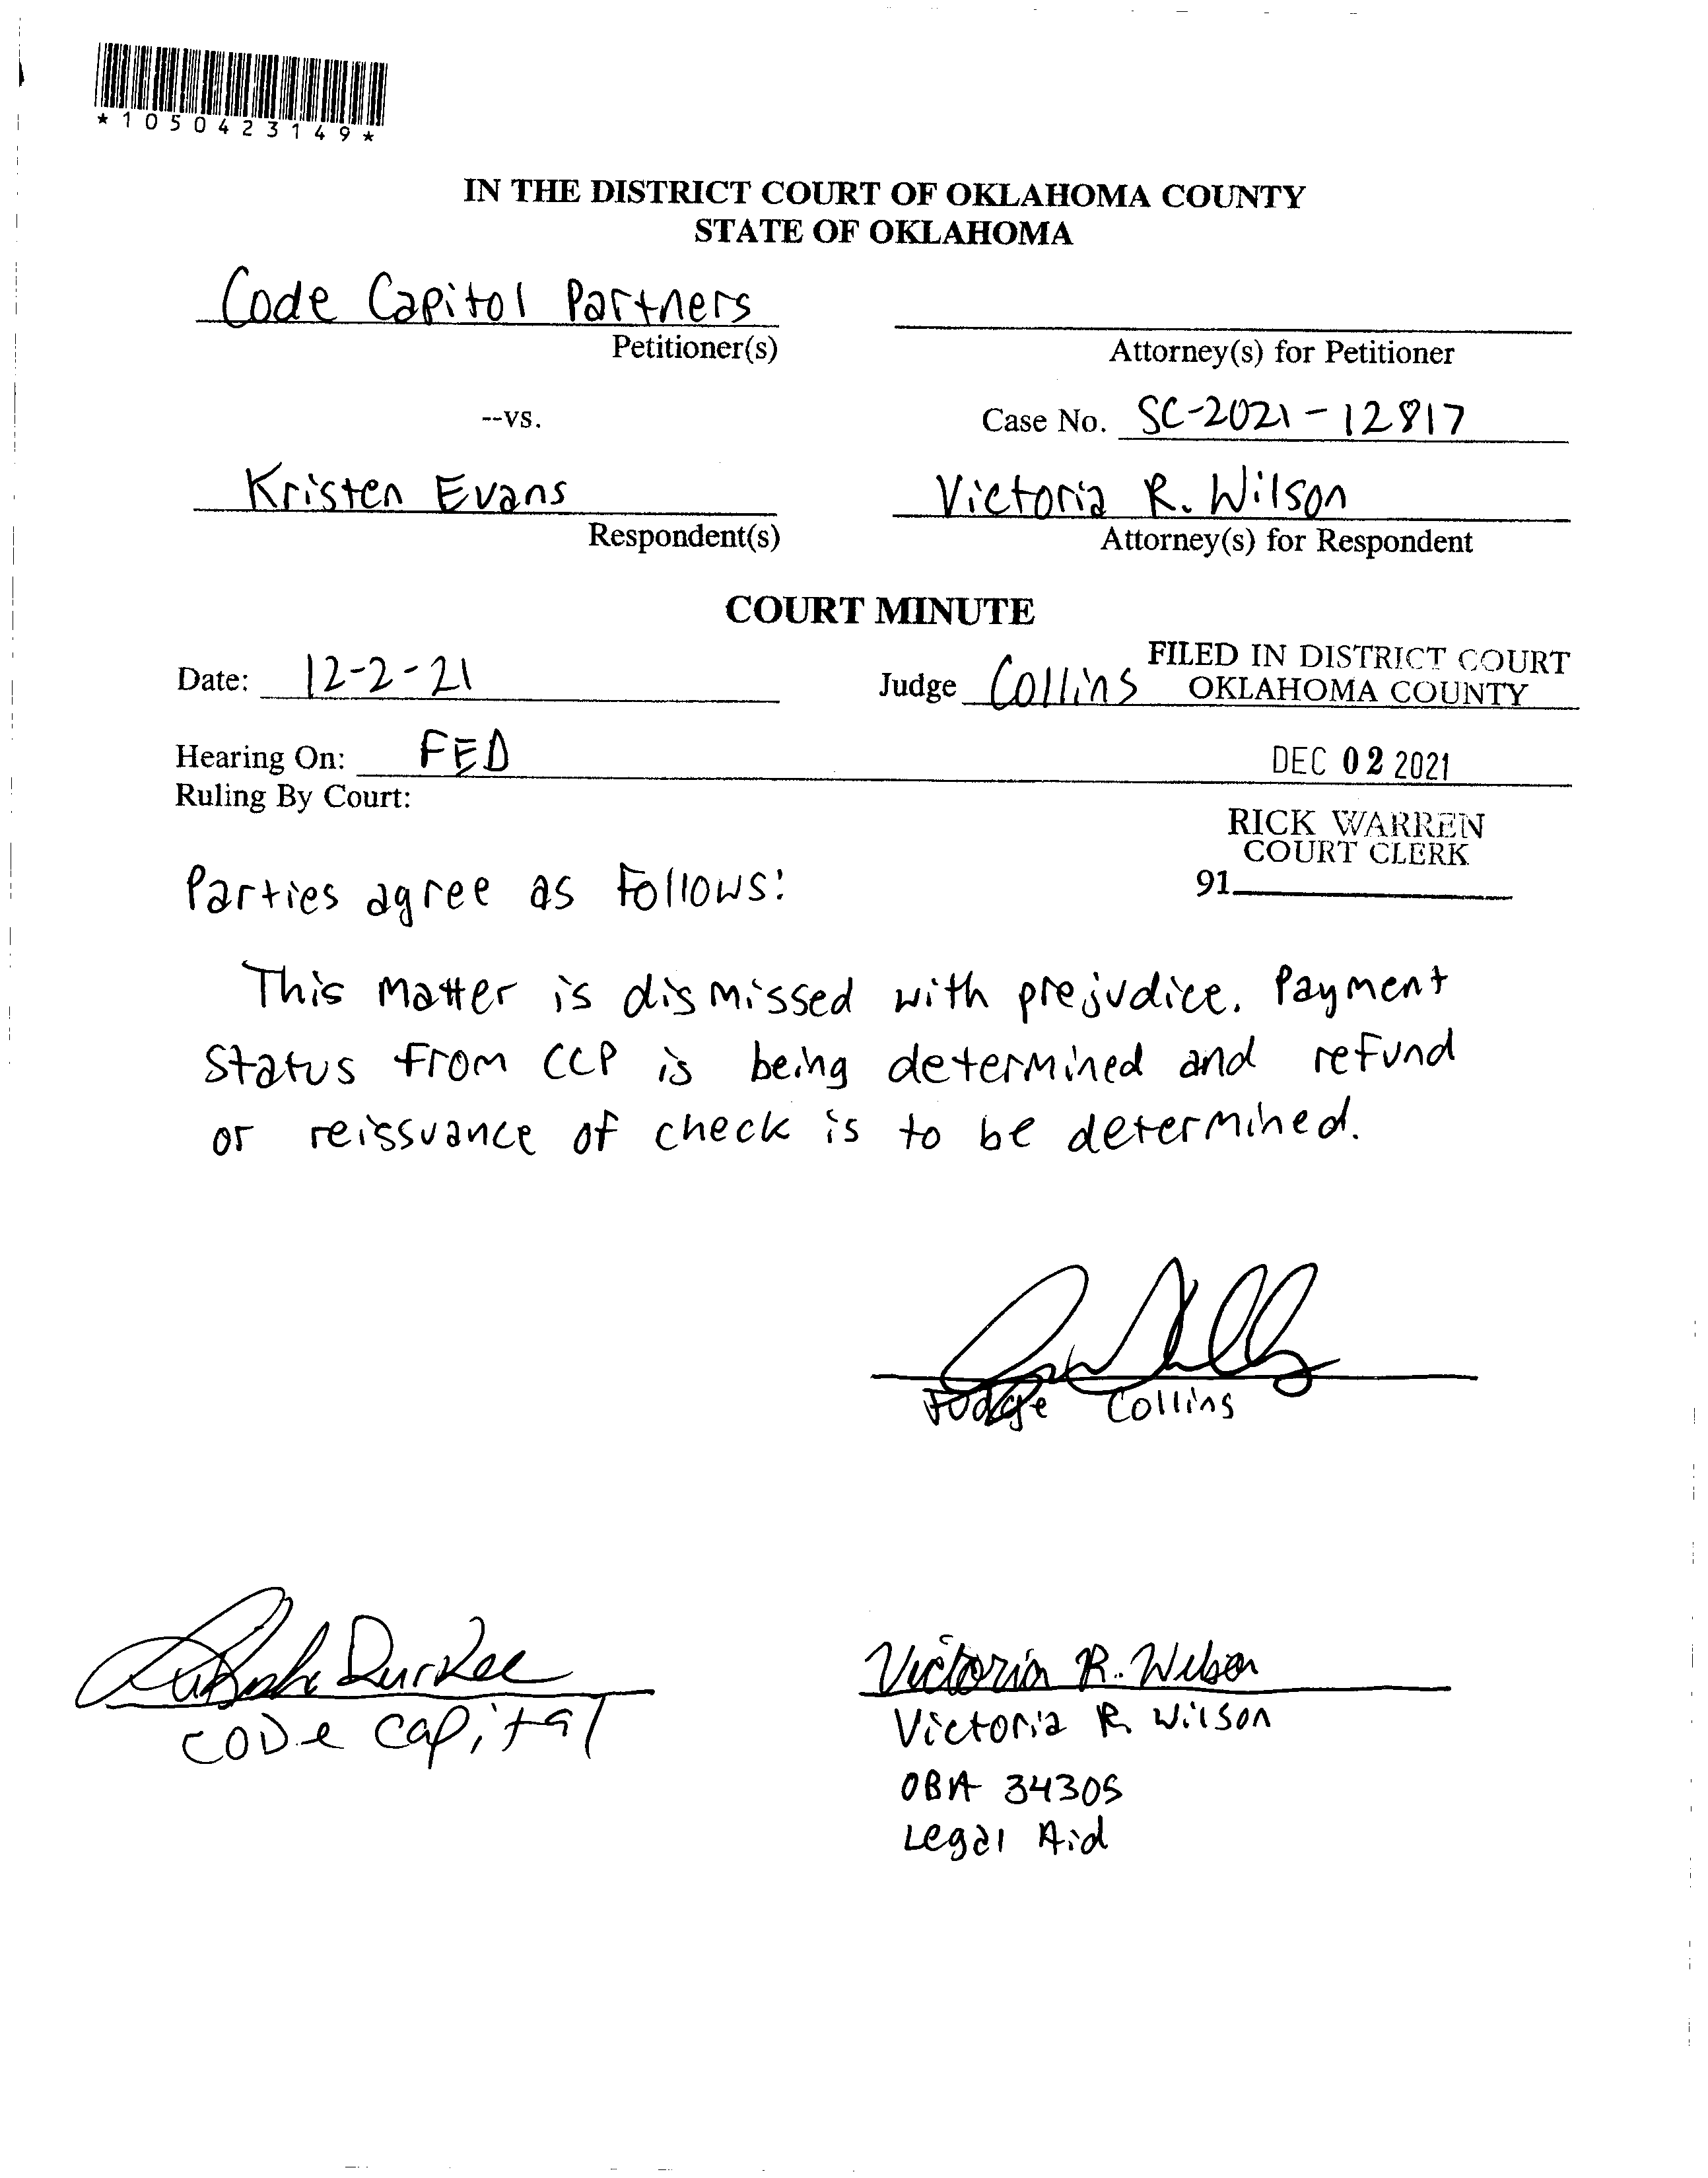 *1050423149*
IN THE DISTRICT COURT OF OKLAHOMA COUNTY
STATE OF OKLAHOMA
Code Capitol Partners
Petitioner(s)
Attorney(s) for Petitioner
--vs.
Case No. SC-2021-12817
Kristen Evans
Respondent(s)
Victoria R. Wilson
Attorney(s) for Respondent
COURT MINUTE
FILED IN DISTRICT COURT
OKLAHOMA COUNTY
Date: 12-2-21
Judge Collins
Hearing On: FED
DEC 02 2021
Ruling By Court:
RICK WARREN
COURT CLERK
91
Parties agree as follows:
This matter is dismissed with prejudice. Payment
status from CCP is being determined and refund
or reissuance of check is to be determined.
Judge Collins
Durkee
CODe Capital
Victoria R. Wilson
Victoria R. Wilson
OBA 34305
Legal Aid